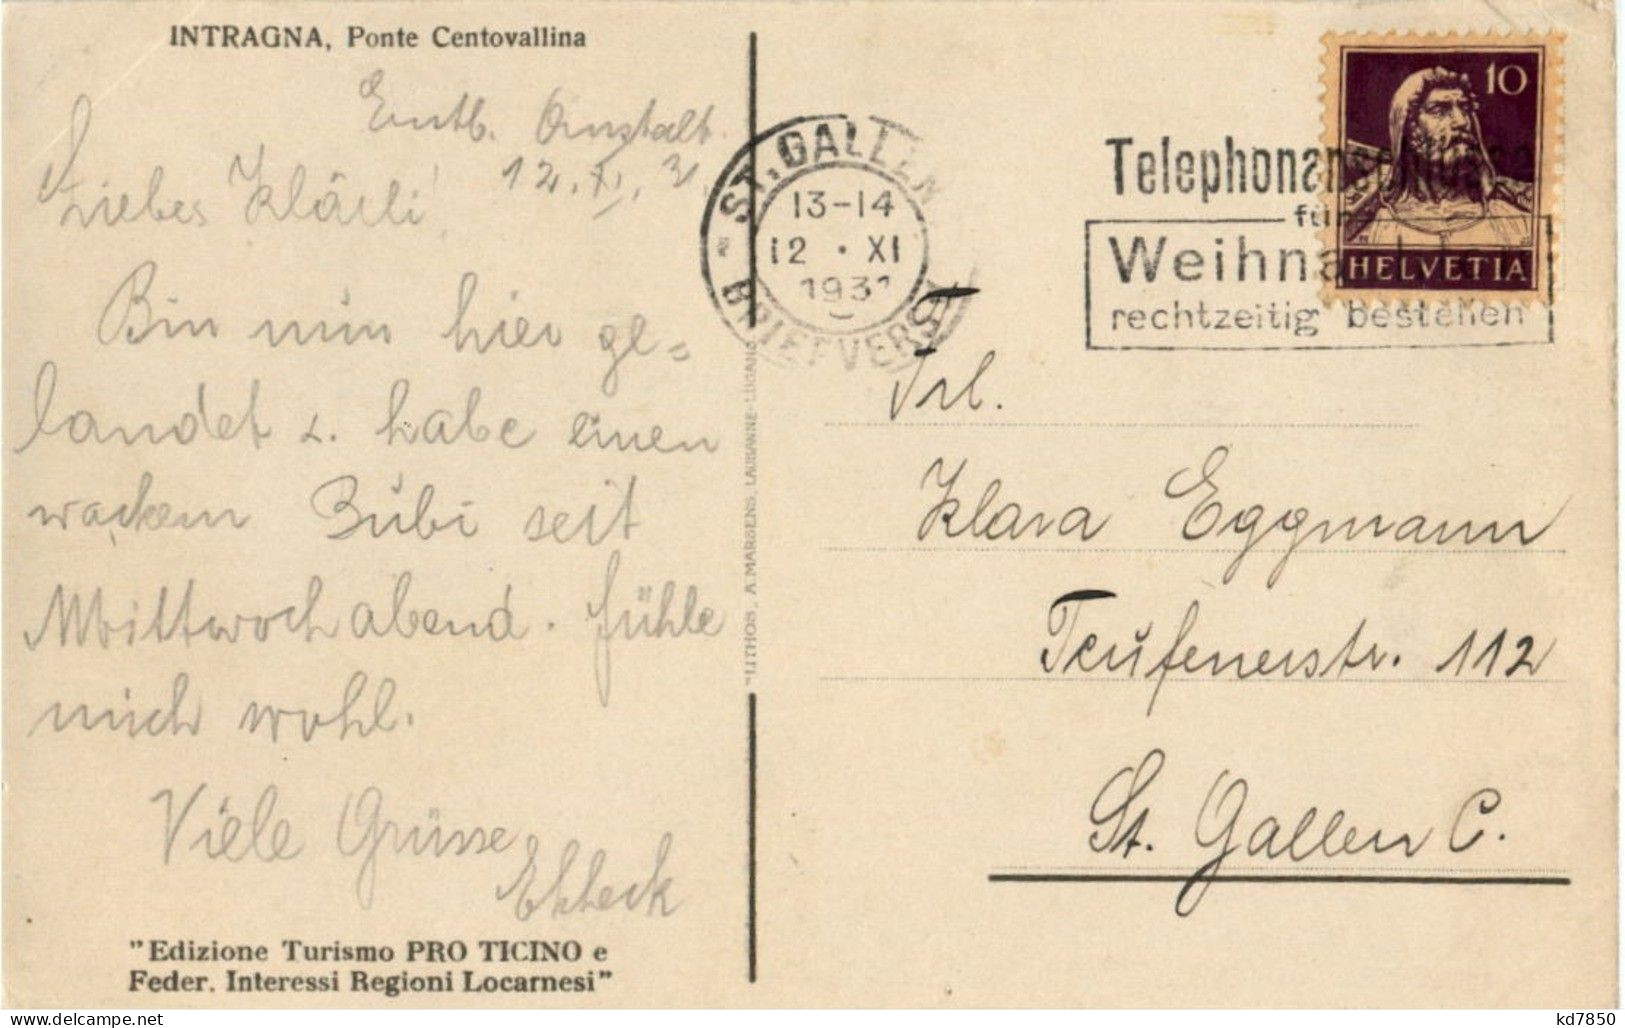 INTRAGNA, Ponte Centovallina
Entb. Anstalt.
12. XI. 31.
Liebes Klärli!
Bin nun hier ge=
landet u. habe einen
wackern Bubi seit
Mittwoch abend. Fühle
mich wohl.
Viele Grüsse
"Edizione Turismo PRO TICINO e
Feder. Interessi Regioni Locarnesi"
"LITHOS", A. MARSENS, LAUSANNE-LUGANO
ST. GALLEN
13-14
12 · XI
1931
BRIEFVERS
10
HELVETIA
Telephonanschlüsse
für
Weihnachten
rechtzeitig bestellen
Frl.
Klara Eggmann
Teufenerstr. 112
St. Gallen C.
kd7850